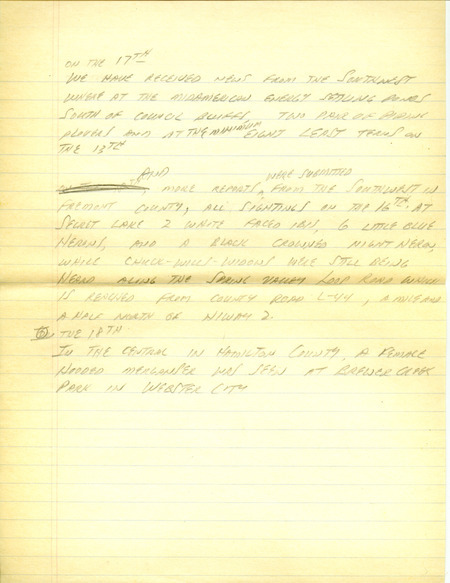 ON THE 17TH
WE HAVE RECEIVED NEWS FROM THE SOUTHWEST
WHERE AT THE MIDAMERICAN ENERGY SETTLING PONDS
SOUTH OF COUNCIL BLUFFS, TWO PAIR OF PIPING
PLOVERS AND AT THE MINIMUM EIGHT LEAST TERNS ON
THE 13TH
AND WERE SUBMITTED
, MORE REPORTS, FROM THE SOUTHWEST IN
FREMONT COUNTY, ALL SIGHTINGS ON THE 16TH AT
SECRET LAKE 2 WHITE FACED IBIS, 6 LITTLE BLUE
HERONS, AND A BLACK CROWNED NIGHT HERON,
WHILE CHUCK-WILLS-WIDOWS WERE STILL BEING
HEARD ALONG THE SPRING VALLEY LOOP ROAD WHICH
IS REACHED FROM COUNTY ROAD L-44, A MILE AND
A HALF NORTH OF HIWAY 2.
THE 18TH
IN THE CENTRAL IN HAMILTON COUNTY, A FEMALE
HOODED MERGANSER WAS SEEN AT BREWER CREEK
PARK IN WEBSTER CITY